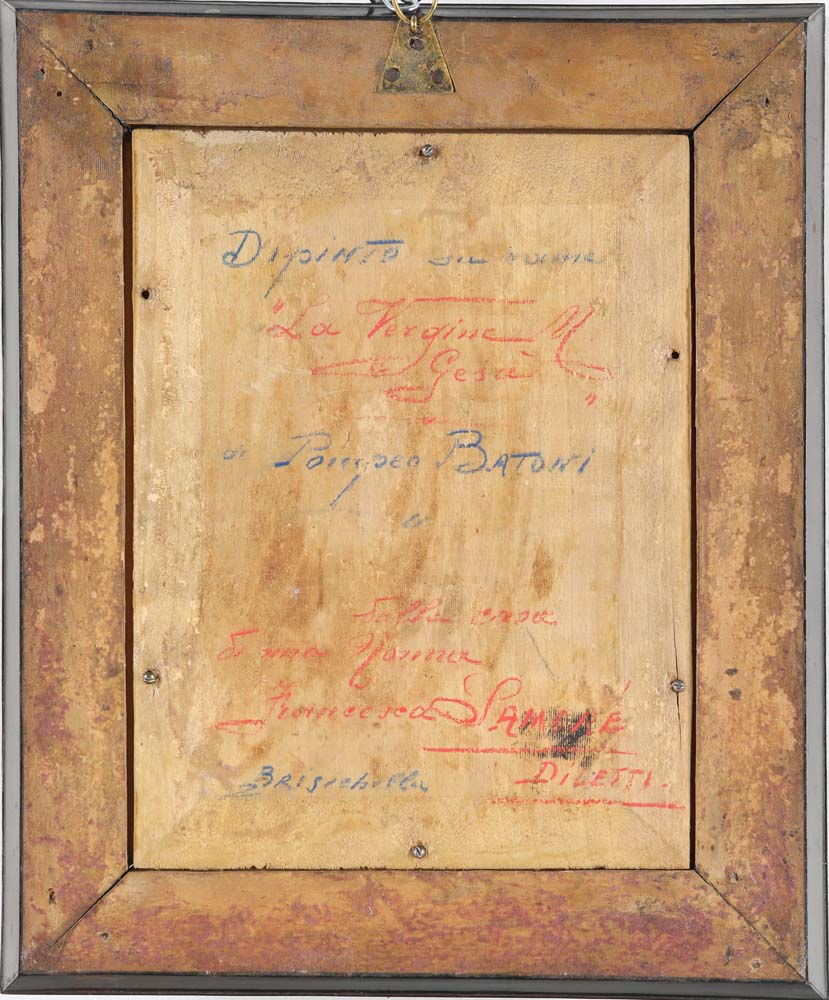 Dipinto su rame
"La Vergine M.
Gesù"
di Pompeo BATONI
dalla casa
di mia Nonna
Francesca
DILETTI.
BRISichella